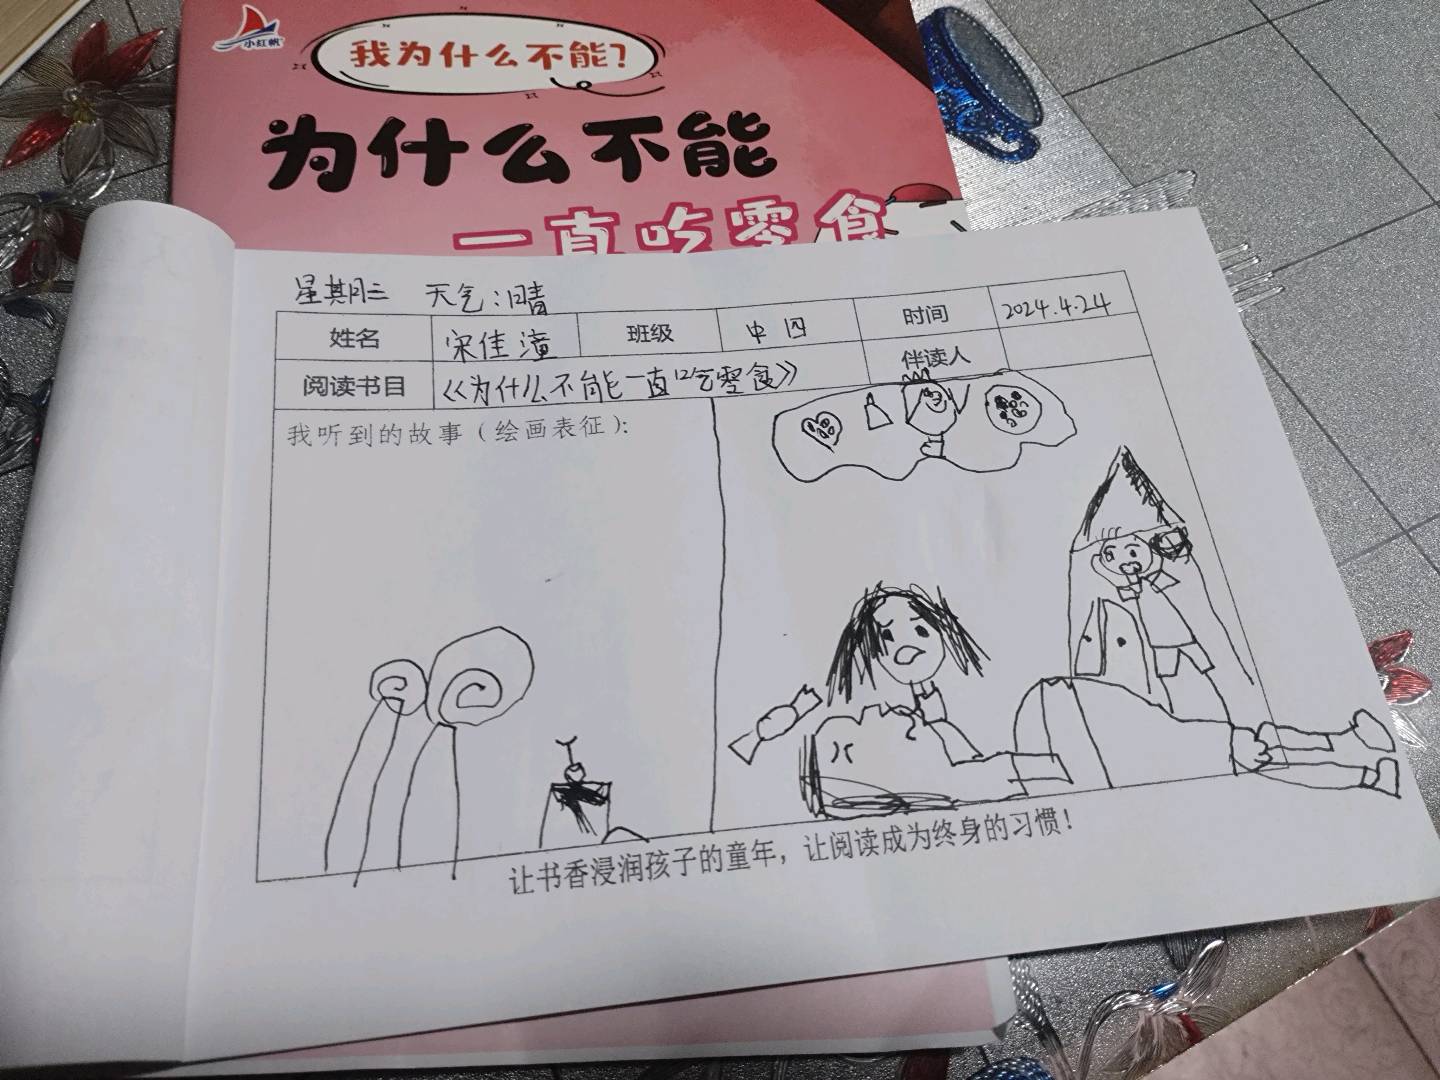 小红帆
我为什么不能？
为什么不能
一直吃零食
星期三 天气：晴
姓名 宋佳潼 班级 中四 时间 2024.4.24
阅读书目 《为什么不能一直吃零食》 伴读人
我听到的故事（绘画表征）：
让书香浸润孩子的童年，让阅读成为终身的习惯！